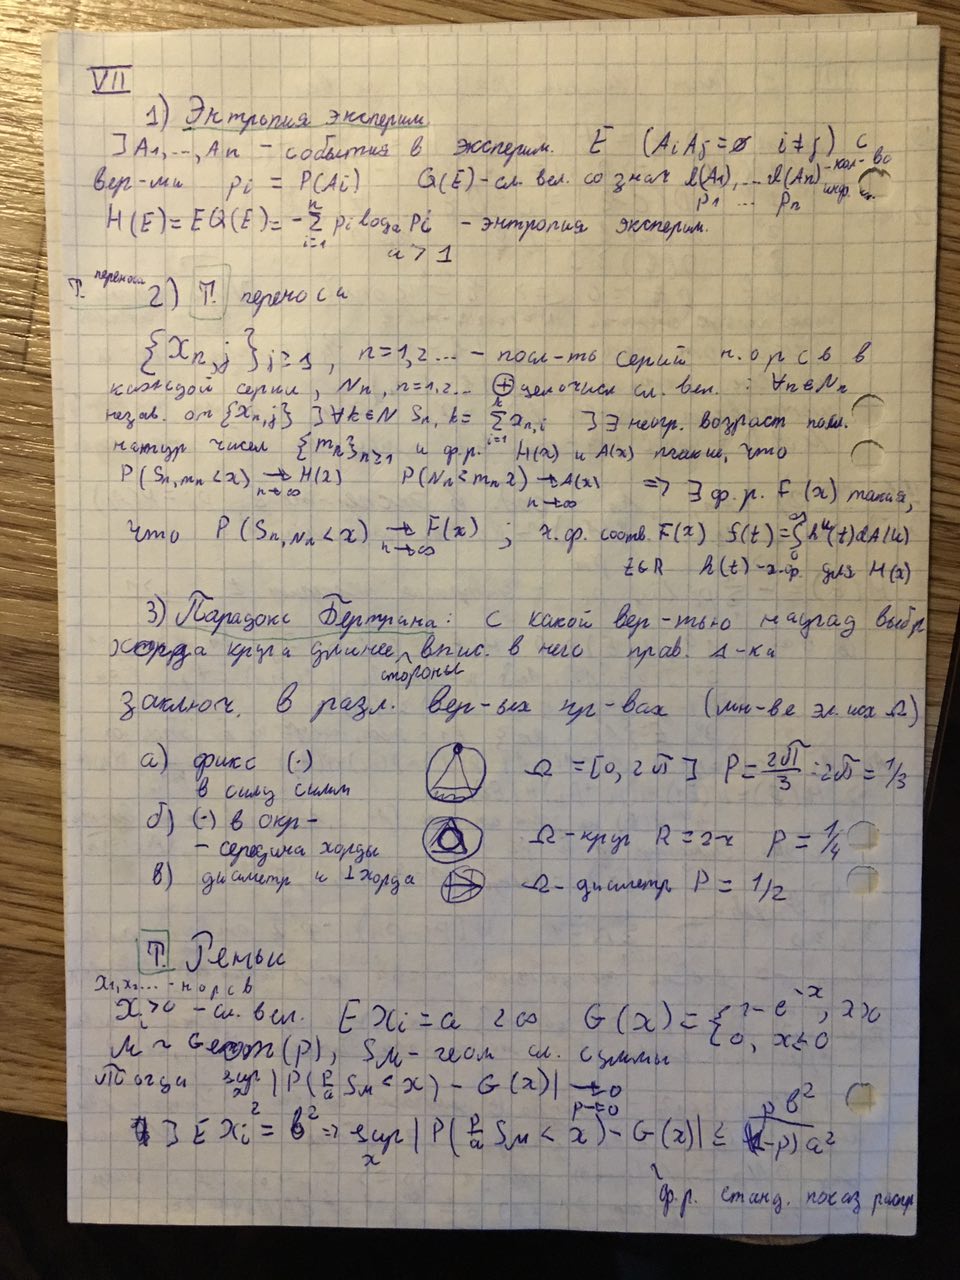 VII
1) Энтропия эксперим.
∃ A1,...,An - события в эксперим. E (AiAj=∅ i≠j) с
вер-ми pi = P(Ai) Q(E)-сл. вел. со знач l(A1),... l(An) - кол-во инф.
p1 ... pn
H(E)=EQ(E)= -∑ pi loga pi - энтропия эксперим.
i=1 n
a > 1
Т. переноса 2) Т. переноса
{Xn,j}j≥1, n=1,2... - посл-ть серий н.о.р.с.в в
каждой серии, Nn, n=1,2... ⊕ целочисл сл. вел. : ∀n Nn
незав. от {Xn,j} ∃ ∀k∈N Sn,k = ∑ xn,i ∃ ∃ неогр. возраст посл.
i=1 k
натур чисел {mn}n≥1 и ф.р. H(x) и A(x) такие, что
P(Sn,mn<x) → H(x) P(Nn<mn x) → A(x) => ∃ ф.р. F(x) такая,
n→∞ n→∞
что P(Sn,Nn<x) → F(x) ; х.ф. соотв. F(x) f(t)=∫ h^u(t)dA(u)
n→∞ 0 ∞
t∈R h(t)-х.ф. для H(x)
3) Парадокс Бертрана: с какой вер-тью наугад выбр
хорда круга длинее стороны впис. в него прав. Δ-ка
заключ. в разл. вер-ых пр-вах (мн-ве эл. исх Ω)
а) фикс (·) Ω = [0, 2π] P = 2π/3 : 2π = 1/3
в силу симм
б) (·) в окр- Ω - круг R = 2-х P = 1/4
- середина хорды
в) диаметр и ⊥ хорда Ω - диаметр P = 1/2
Т. Реньи
X1,X2... - н о р с в
Xi>0 - сл. вел. E Xi = a < ∞ G(x) = { 1-e^-x, x>0
0, x≤0
M ~ Geom(p), SM - геом сл. суммы
Тогда sup |P(p/a SM < x) - G(x)| → 0
x p→0
∃ E Xi² = b² => sup |P(p/a SM < x) - G(x)| ≤ pb²/(1-p)a²
x
ф.р. станд. показ распр